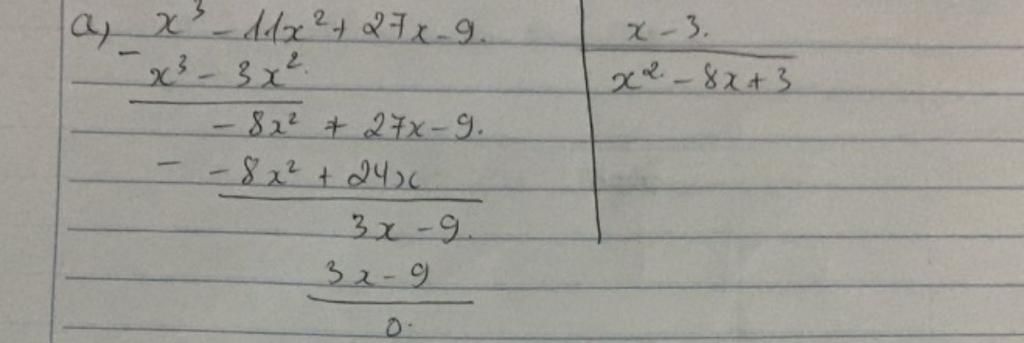 a, x³ - 11x² + 27x - 9. | x - 3.
- x³ - 3x². | x² - 8x + 3
- 8x² + 27x - 9.
- - 8x² + 24x
3x - 9.
3x - 9
0.